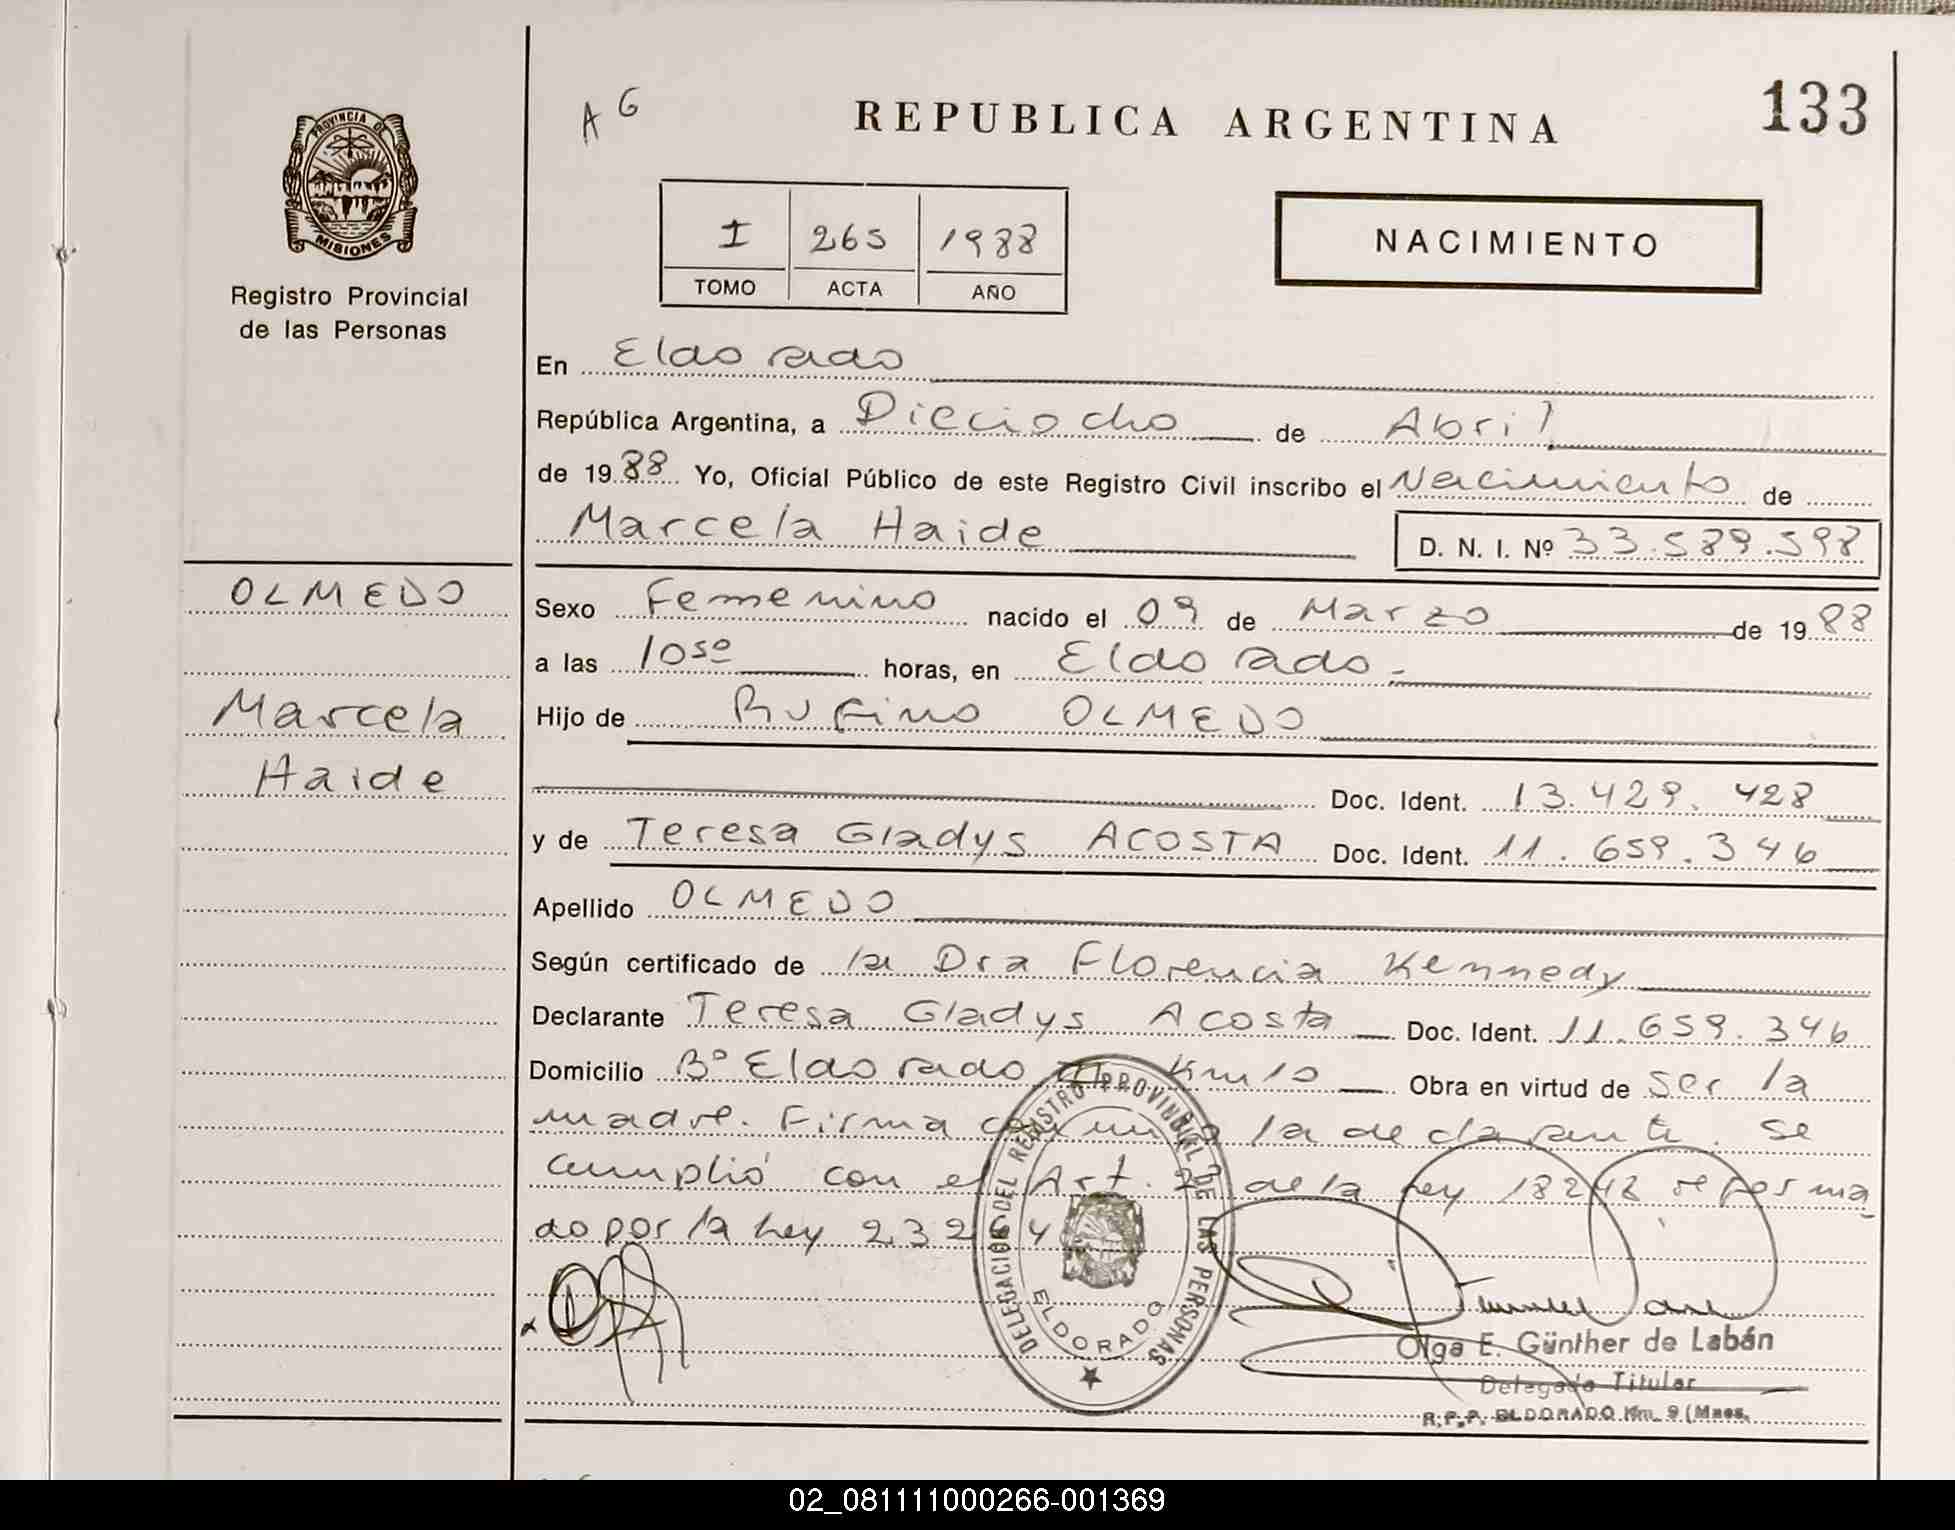 A G
REPUBLICA ARGENTINA
133
PROVINCIA DE
MISIONES
Registro Provincial
de las Personas
I 265 1988
TOMO ACTA AÑO
NACIMIENTO
En Eldorado
República Argentina, a Dieciocho de Abril
de 1988 Yo, Oficial Público de este Registro Civil inscribo el Nacimiento de
Marcela Haide
D. N. I. Nº 33.589.598
OLMEDO
Marcela
Haide
Sexo Femenino nacido el 09 de Marzo de 1988
a las 10⁵⁰ horas, en Eldorado.
Hijo de Rufino OLMEDO
Doc. Ident. 13.429.428
y de Teresa Gladys ACOSTA Doc. Ident. 11.659.346
Apellido OLMEDO
Según certificado de la Dra Florencia Kennedy
Declarante Teresa Gladys Acosta Doc. Ident. 11.659.346
Domicilio Bº Eldorado Km 10 Obra en virtud de ser la
madre. Firma conmigo la declarante. se
cumplió con el Art. 2º de la Ley 18248 reforma
do por la Ley 232 4
DELEGACION DEL REGISTRO PROVINCIAL DE LAS PERSONAS
ELDORADO
Olga E. Günther de Labán
Delegado Titular
R.P.P. ELDORADO Km. 9 (Mnes.
02_081111000266-001369